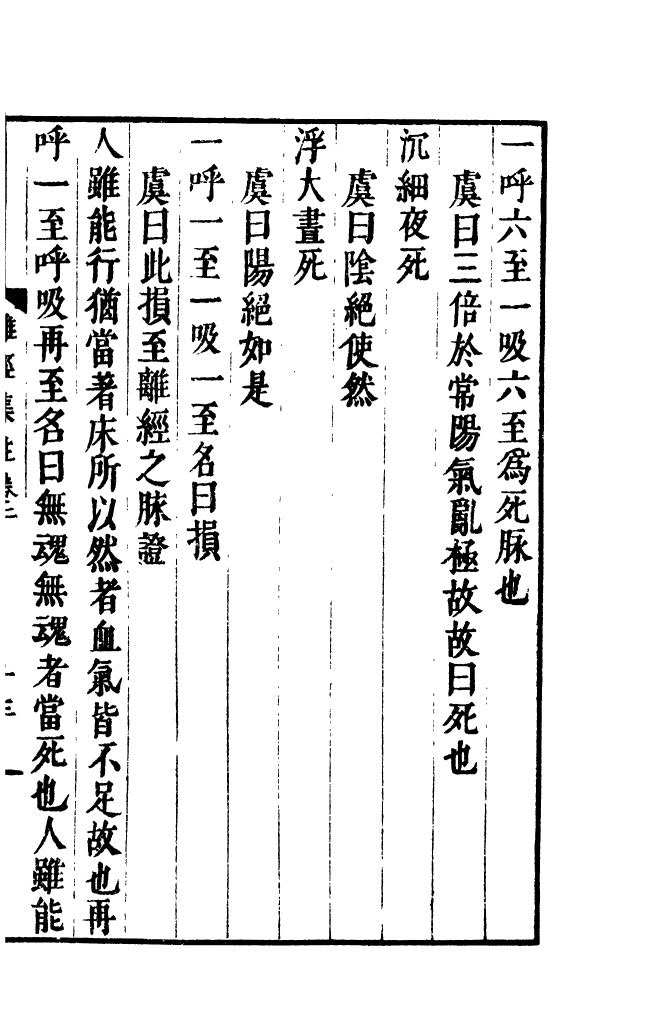 一呼六至一吸六至爲死脉也
虞曰三倍於常陽氣亂極故故曰死也
沉細夜死
虞曰陰絕使然
浮大晝死
虞曰陽絕如是
一呼一至一吸一至名曰損
虞曰此損至離經之脉證
人雖能行猶當著床所以然者血氣皆不足故也再
呼一至呼吸再至名曰無魂無魂者當死也人雖能
難經集註卷二
十三